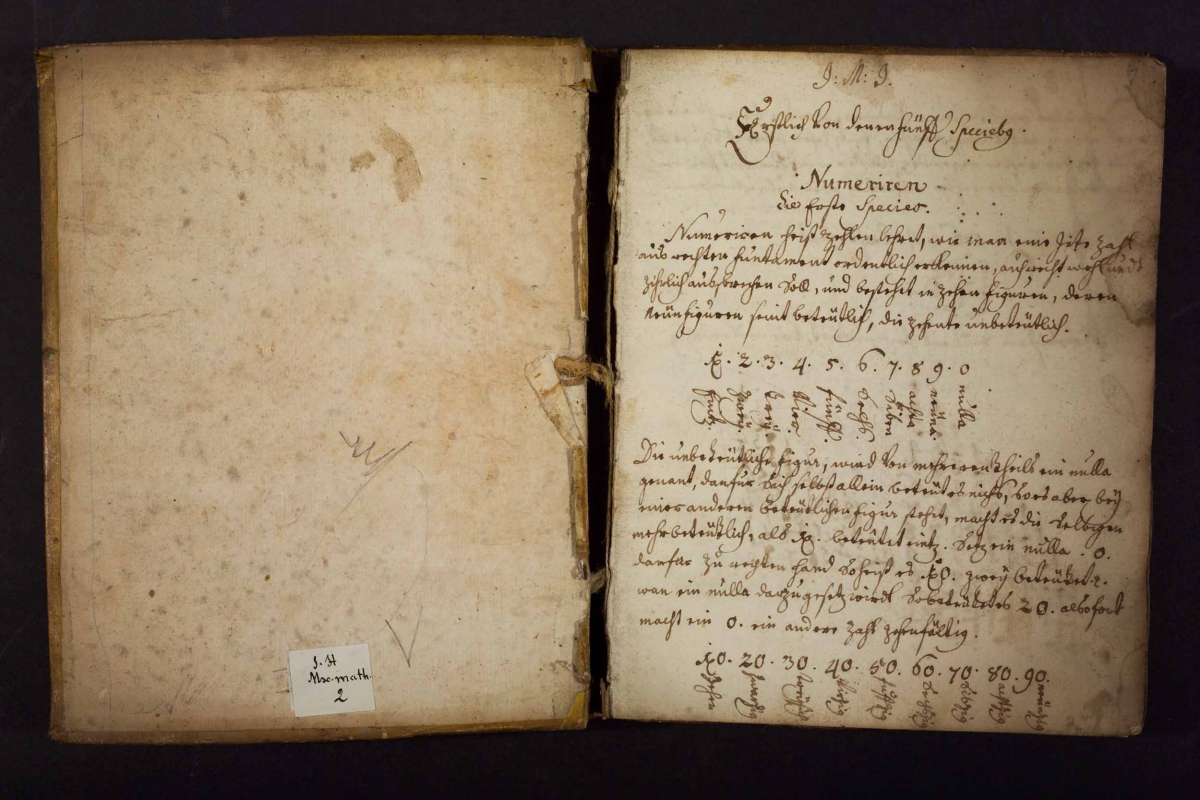 J. H
Mse. math.
2
J: M: J.
Erstlich Von denen fünff Speciebg.
Numeriren
die Erste Species.
Numeriren heist zehlen lehret, wie man eine jete Zahl
aus rechten funtament ordentlich erkennen, aufrecht wohl undt
zihrlich aussbrechen Soll, und bestehet in zehen figuren, deren
neün figuren seint beteütlich, die zehente unbeteütlich.
1. 2. 3. 4. 5. 6. 7. 8 9. 0
eintz. zweü. dreü. Vier. fünff. Sechs. Siben achte neüne. nulla
Die unbeteütliche figur, wird Von mehrerentheils ein nulla
genant, dan für Sich selbst allein beteüt es nichts, So es aber beÿ
einer anderen beteütlichen figur stehet, macht es die Selbigen
mehr beteütlich, als 1. beteütet eintz. Setz ein nulla . 0.
darfür zu rechten hand So heist es 10. zweÿ beteütet 2.
wan ein nulla darzu gesetz wirdt So beteütet es 20. also fort
macht ein 0. ein andere Zahl zehenfältig.
10. 20. 30. 40. 50. 60. 70. 80. 90.
Zehen zwantzig dreÿssig Viertzig fünfftzig Sechtzig Sibtzig achtzig neüntzig